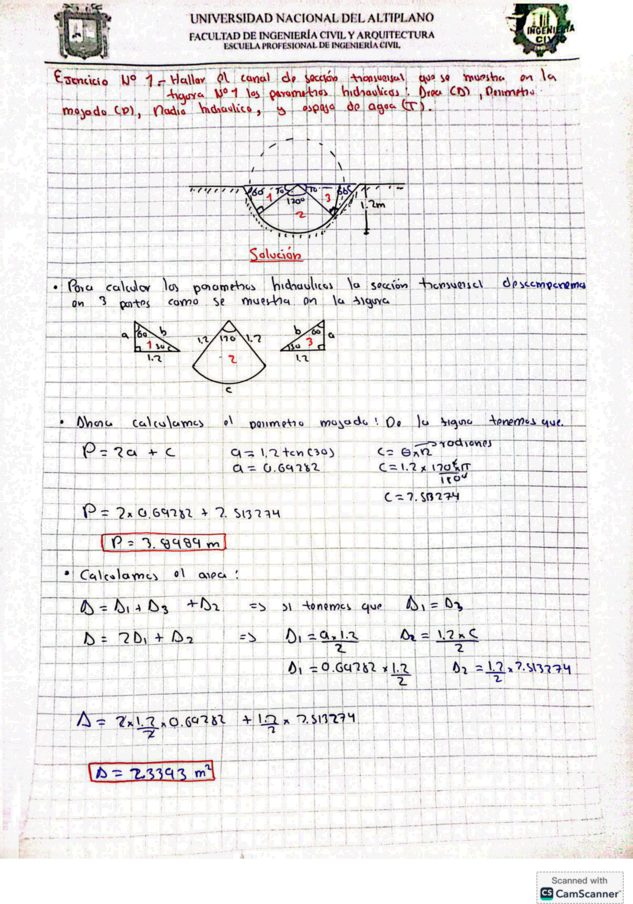 UNIVERSIDAD NACIONAL DEL ALTIPLANO
FACULTAD DE INGENIERÍA CIVIL Y ARQUITECTURA
ESCUELA PROFESIONAL DE INGENIERÍA CIVIL
INGENIERIA
CIVIL
Ejercicio Nº 1.- Hallar el canal de sección transversal que se muestra en la
figura Nº 1 los parametros hidraulicos: Area (A), Perimetro
mojado (P), Radio hidraulico, y espejo de agua (T).
60 70 70 60
1 120° 3
2
1.2m
Solución
• Para calcular los parametros hidraulicos la sección transversal descomponemos
en 3 partes como se muestra en la figura
a 60 b 1.2 120 1.2 b 60 a
1 30 2 30 3
1.2 1.2
c
• Ahora calculamos el perimetro mojado: De la figura tenemos que.
P = 2a + c a = 1.2 tan(30) c = θ x r → radianes
a = 0.69282 c = 1.2 x 120° x π / 180°
c = 2.513274
P = 2 x 0.69282 + 2.513274
P = 3.8989 m
• Calculamos el area:
A = A1 + A3 + A2 => si tenemos que A1 = A3
A = 2A1 + A2 => A1 = a x 1.2 / 2 A2 = 1.2 x c / 2
A1 = 0.69282 x 1.2 / 2 A2 = 1.2 / 2 x 2.513274
A = 2 x 1.2 / 2 x 0.69282 + 1.2 / 2 x 2.513274
A = 2.3393 m²
Scanned with
CS CamScanner